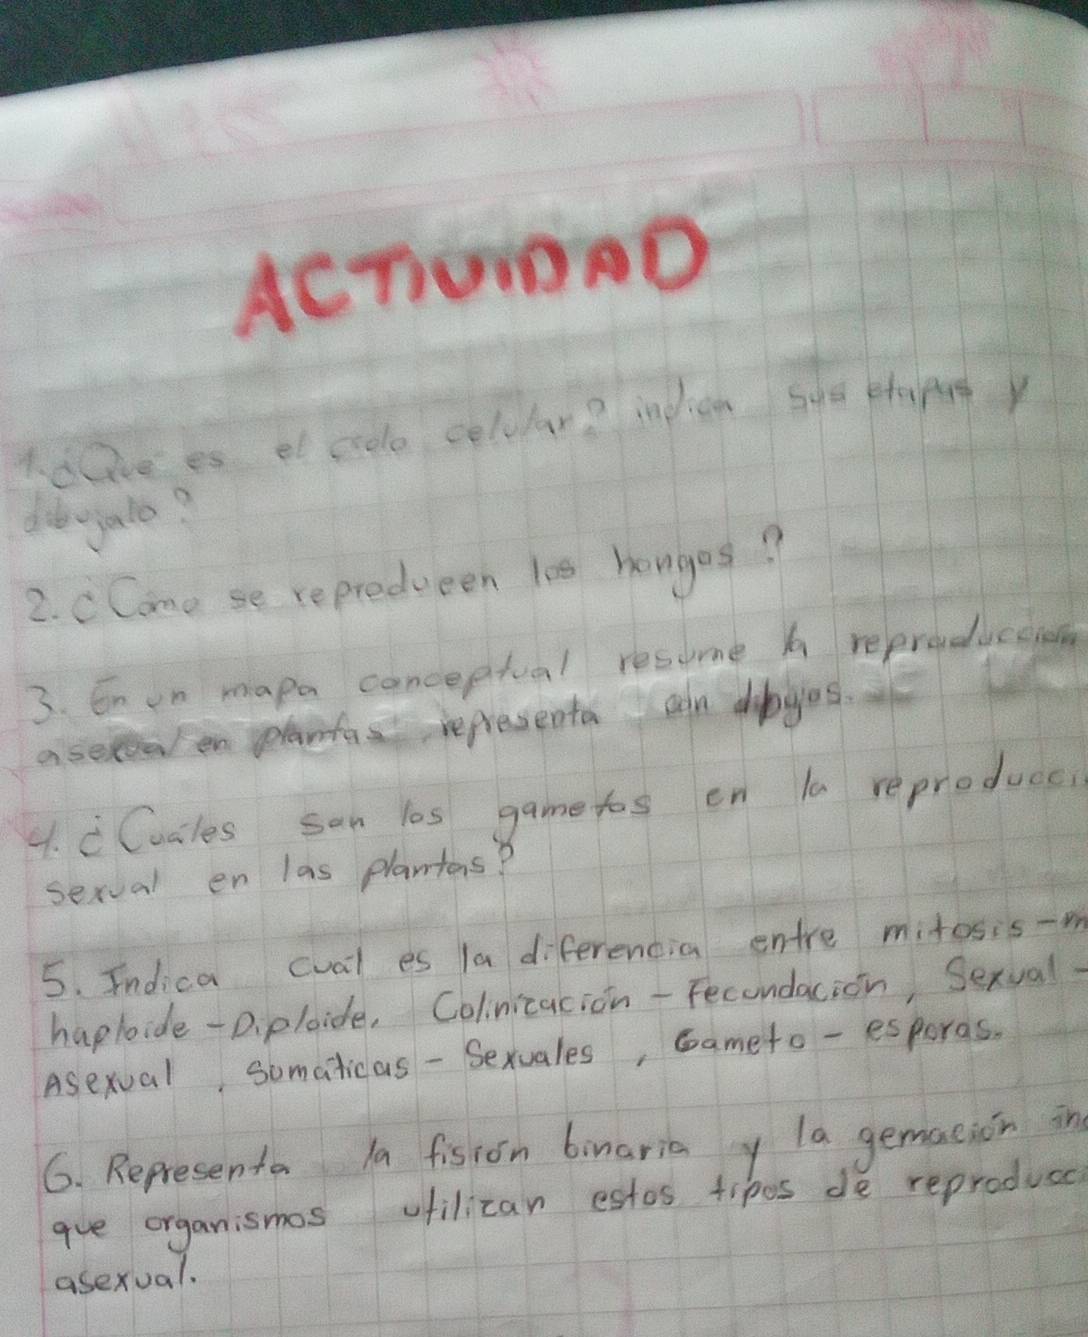 ACTIVIDAD
1. ¿Que es el ciclo celular? indica sus etapas y
dibujalo?
2. ¿Como se reproducen los hongos?
3. En un mapa conceptual resume la reproduccion
asexual en plantas representa con dibujos.
4. ¿Cuáles son los gametos en la reproducci
sexual en las plantas?
5. Indica cuál es la diferencia entre mitosis - m
haploide - Diploide, Colinización - Fecundación, Sexual -
Asexual, somáticas - Sexuales, Gameto - esporas.
6. Representa la fisión binaria y la gemación ind
que organismos utilizan estos tipos de reproducc
asexual.